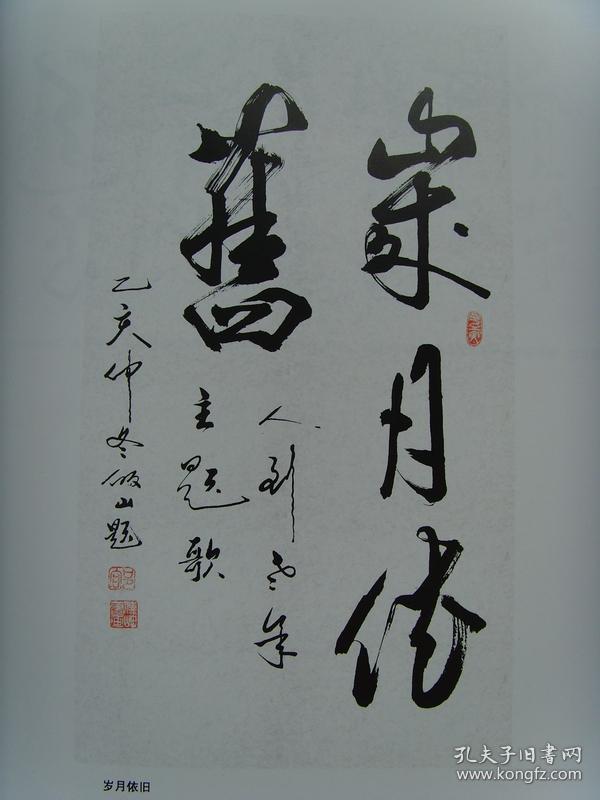 歲月依
舊
人到老年
主題歌
乙亥仲冬山題
岁月依旧
孔夫子旧书网
www.kongfz.com